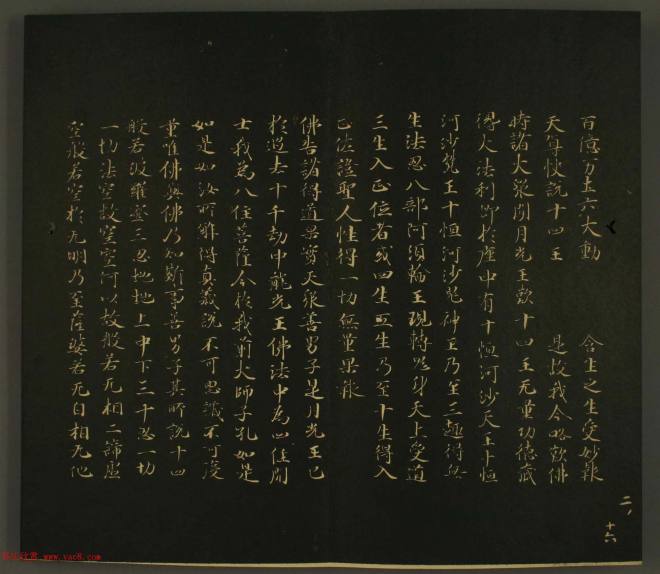 百億万土六大動　含生之生受妙報
天尊快說十四王　是故我今略歎佛
時諸大衆聞月光王歎十四王无量功德藏
得大法利即於座中有十恒河沙天王十恒
河沙梵王十恒河沙鬼神王乃至三趣得無
生法忍八部阿須輪王現轉鬼身天上受道
三生入正位者或四生五生乃至十生得入
正位證聖人性得一切無量果報
佛告諸得道果實天衆善男子是月光王已
於過去十千劫中龍光王佛法中為四住開
士我為八住菩薩今於我前大師子吼如是
如是如汝所解得真義說不可思議不可度
量唯佛與佛乃知斯事善男子其所說十四
般若波羅蜜三忍地地上中下三十忍一切
一切法空故空空何以故般若无相二諦虛
空般若空於无明乃至薩婆若无自相无他
二、十六
www.yac8.com